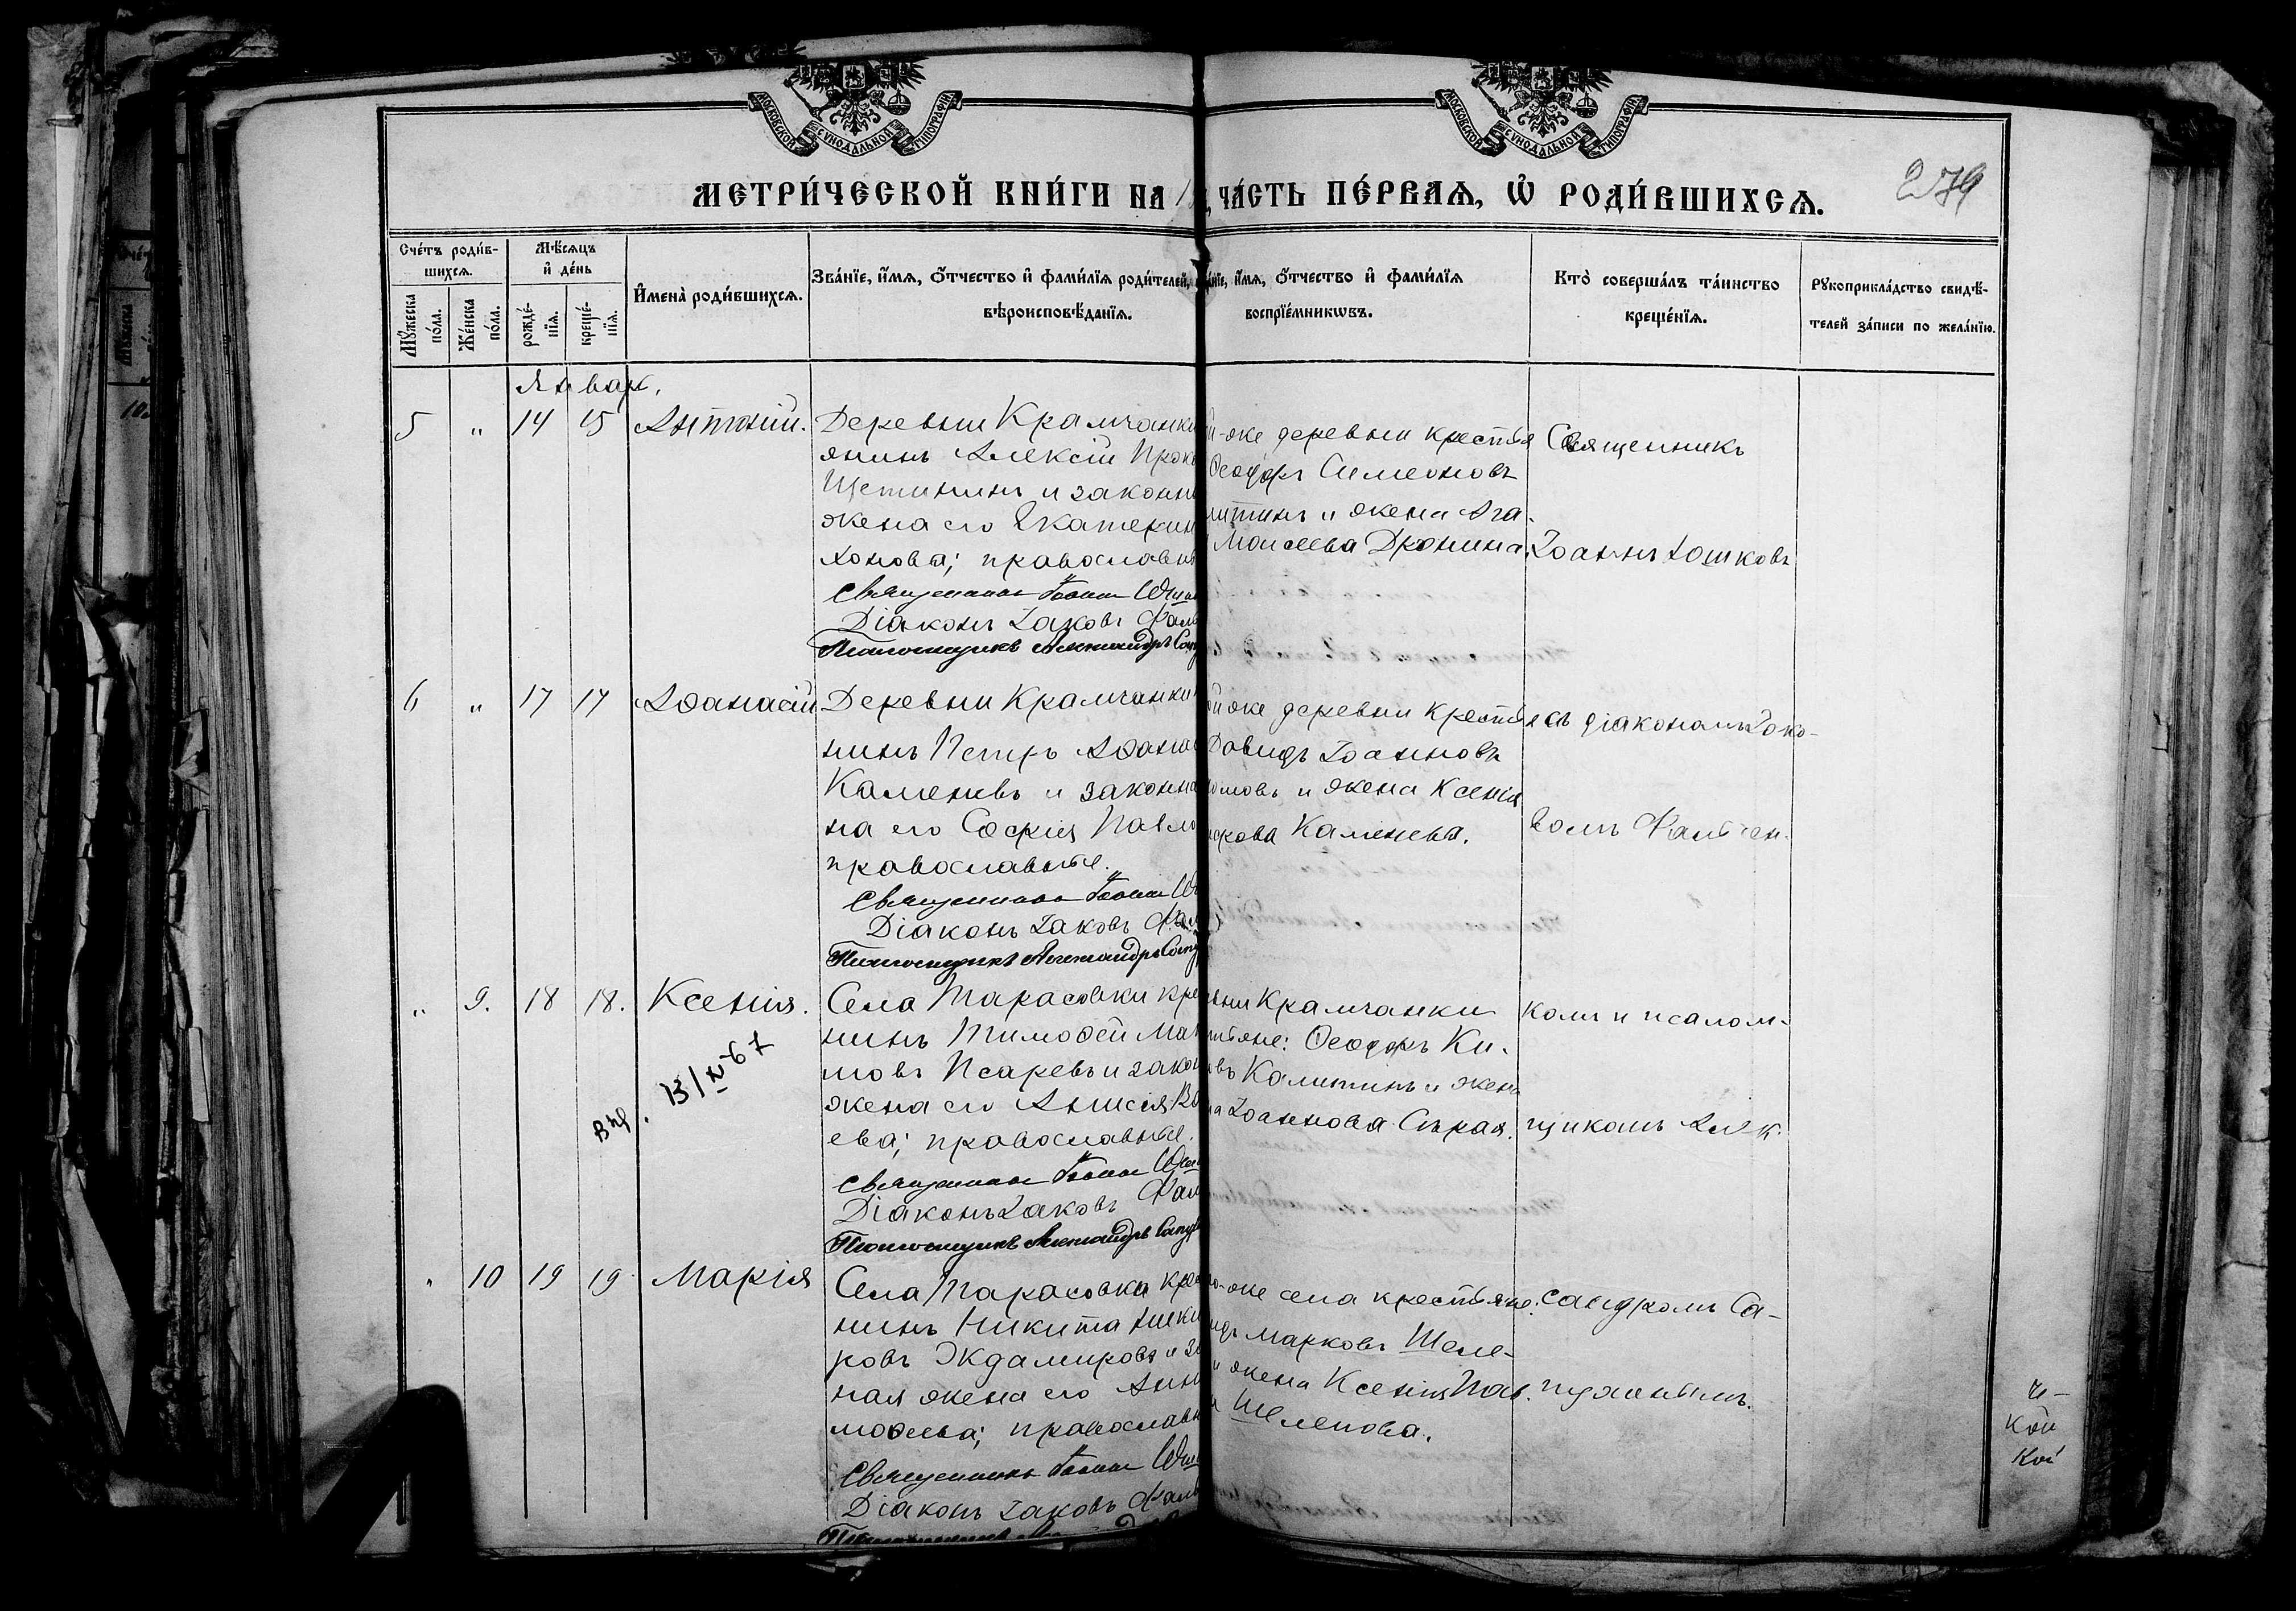 МОСКОВСКОЙ СѴНОДАЛЬНОЙ ТИПОГРАФІИ
МОСКОВСКОЙ СѴНОДАЛЬНОЙ ТИПОГРАФІИ
МЕТРИ́ЧЕСКОЙ КНИ́ГИ НА
ЧА́СТЬ ПЕ́РВАѦ, Ѡ҆ РОДИ́ВШИХСѦ.
279
Сче́тъ роди́в-
шихсѧ.
Мѣ́сѧцъ
и҆ де́нь
Мꙋ́жеска
по́ла.
Же́нска
по́ла.
рожде́-
нїѧ.
креще́-
нїѧ.
И҆мена̀ роди́вшихсѧ.
Зва́нїе, и҆́мѧ, ѻ҆́тчество и҆ фами́лїѧ роди́телей,
вѣроисповѣ́данїѧ.
и҆́мѧ, ѻ҆́тчество и҆ фами́лїѧ
воспрїе́мникѡвъ.
Кто̀ соверша́лъ та́инство
креще́нїѧ.
Рꙋкоприкла́дство свидѣ́-
телей за́писи по жела́нїю.
Январ.
5 " 14 15 Антоній.
Деревни Крамчанки
янинъ Алексій Прок
Щетининъ и законн
жена его Екатерин
хонова; православн
Священникъ Іоаннъ
Діаконъ Іаковъ Фаль
Псаломщикъ Александръ Сап
й-же деревни крестья
Ѳеодоръ Симеоновъ
литинъ и жена Ага-
Моисеева Дронина.
Священникъ
Іоаннъ
6 " 17 17 Аѳанасій
Деревни Крамчанки
нинъ Петръ Аѳана
Каменевъ и законна
на его Софія Павло
православные.
Священникъ Іоаннъ
Діаконъ Іаковъ Фал
Псаломщикъ Александръ Сап
й же деревни крестья
Давидъ Іоанновъ
омовъ и жена Ксенія
Каменева.
съ діакономъ Іако-
вомъ Фальчен-
" 9. 18 18. Ксенія.
Села Тарасовки кре
нинъ Тимоѳей Мак
мовъ Псаревъ и закон
жена его Анисія
ева; православные.
Священникъ Іоаннъ
Діаконъ Іаковъ Фал
Псаломщикъ Александръ Сапу
13/X-67
вни Крамчанки
тьяне: Ѳеодоръ Ки-
овъ Калитинъ и жена
на Іоаннова Сырая.
комъ и псалом-
щикомъ Алек-
" 10 19 19 Марія
Села Тарасовки кре
нинъ Никита Ники
ровъ Ждамировъ и за
ная жена его Анн
моѳеева; православн
Священникъ Іоаннъ
Діаконъ Іаковъ Фаль
о-же села крестьяне:
идъ Марковъ Шеле-
и жена Ксенія Пав.
Шелепова.
сандромъ Са-
пухинымъ.
кой
кой